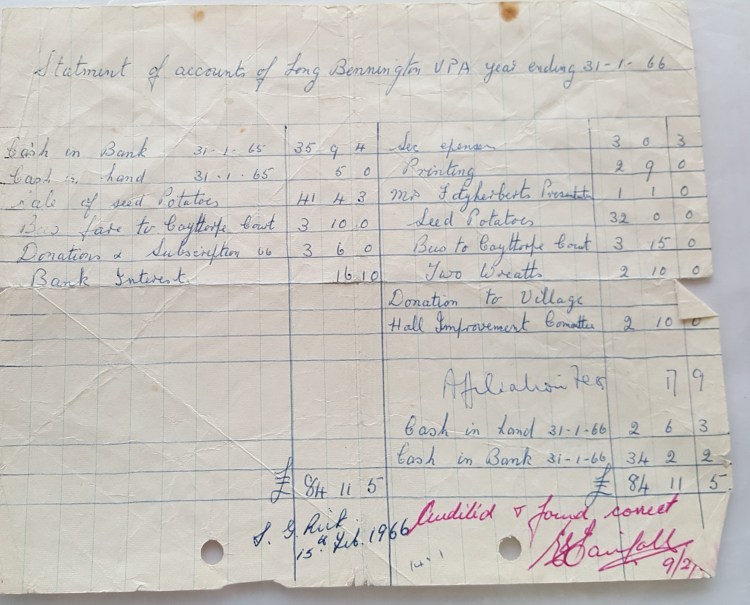 Statment of accounts of Long Bennington VPA year ending 31-1-66
Cash in Bank 31-1-65 35 9 4
Cash in hand 31-1-65 5 0
Sale of seed Potatoes 41 4 3
Bus fare to Caythorpe Court 3 10 0
Donations & Subscription 66 3 6 0
Bank Interest 16 10
£ 84 11 5
Sec epenses 3 0 3
Printing 2 9 0
Presentation 1 1 0
Seed Potatoes 32 0 0
Bus to Caythorpe Court 3 15 0
Two Wreaths 2 10 0
Donation to Village
Hall Improvement Committee 2 10 0
Affiliation Fees 17 9
Cash in hand 31-1-66 2 6 3
Cash in Bank 31-1-66 34 2 2
£ 84 11 5
15th Feb. 1966
Audited & found correct